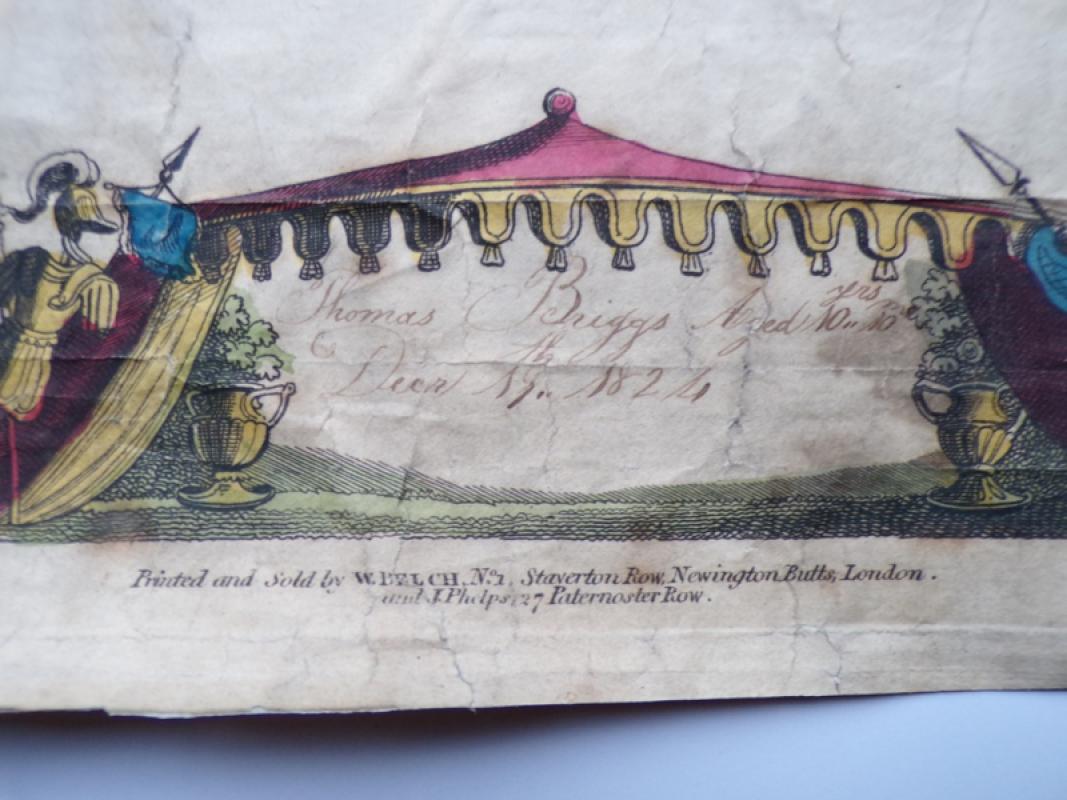 yrs
Thomas Briggs Aged 10.. 10
th
Decr 19.. 1824
Printed and Sold by W. BELCH, No. 1, Staverton Row, Newington Butts, London.
and J. Phelps, 27 Paternoster Row.